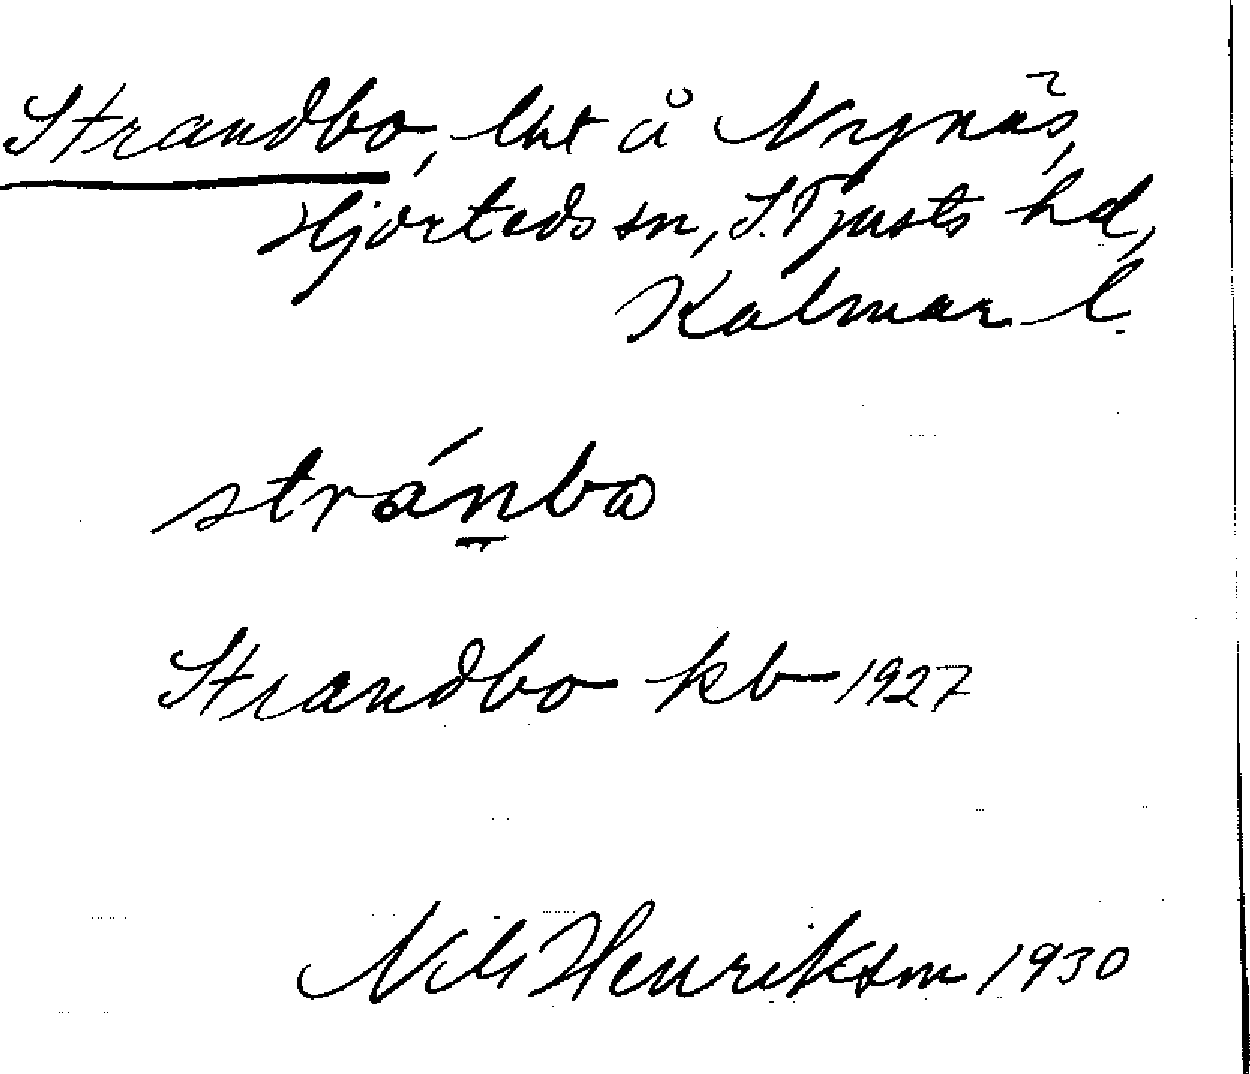 Strandbo, lht å Nynäs,
Hjorteds sn, S. Tjusts hd,
Kalmar l.
stránbω
Strandbo kb 1927
Nils Henrikson 1930